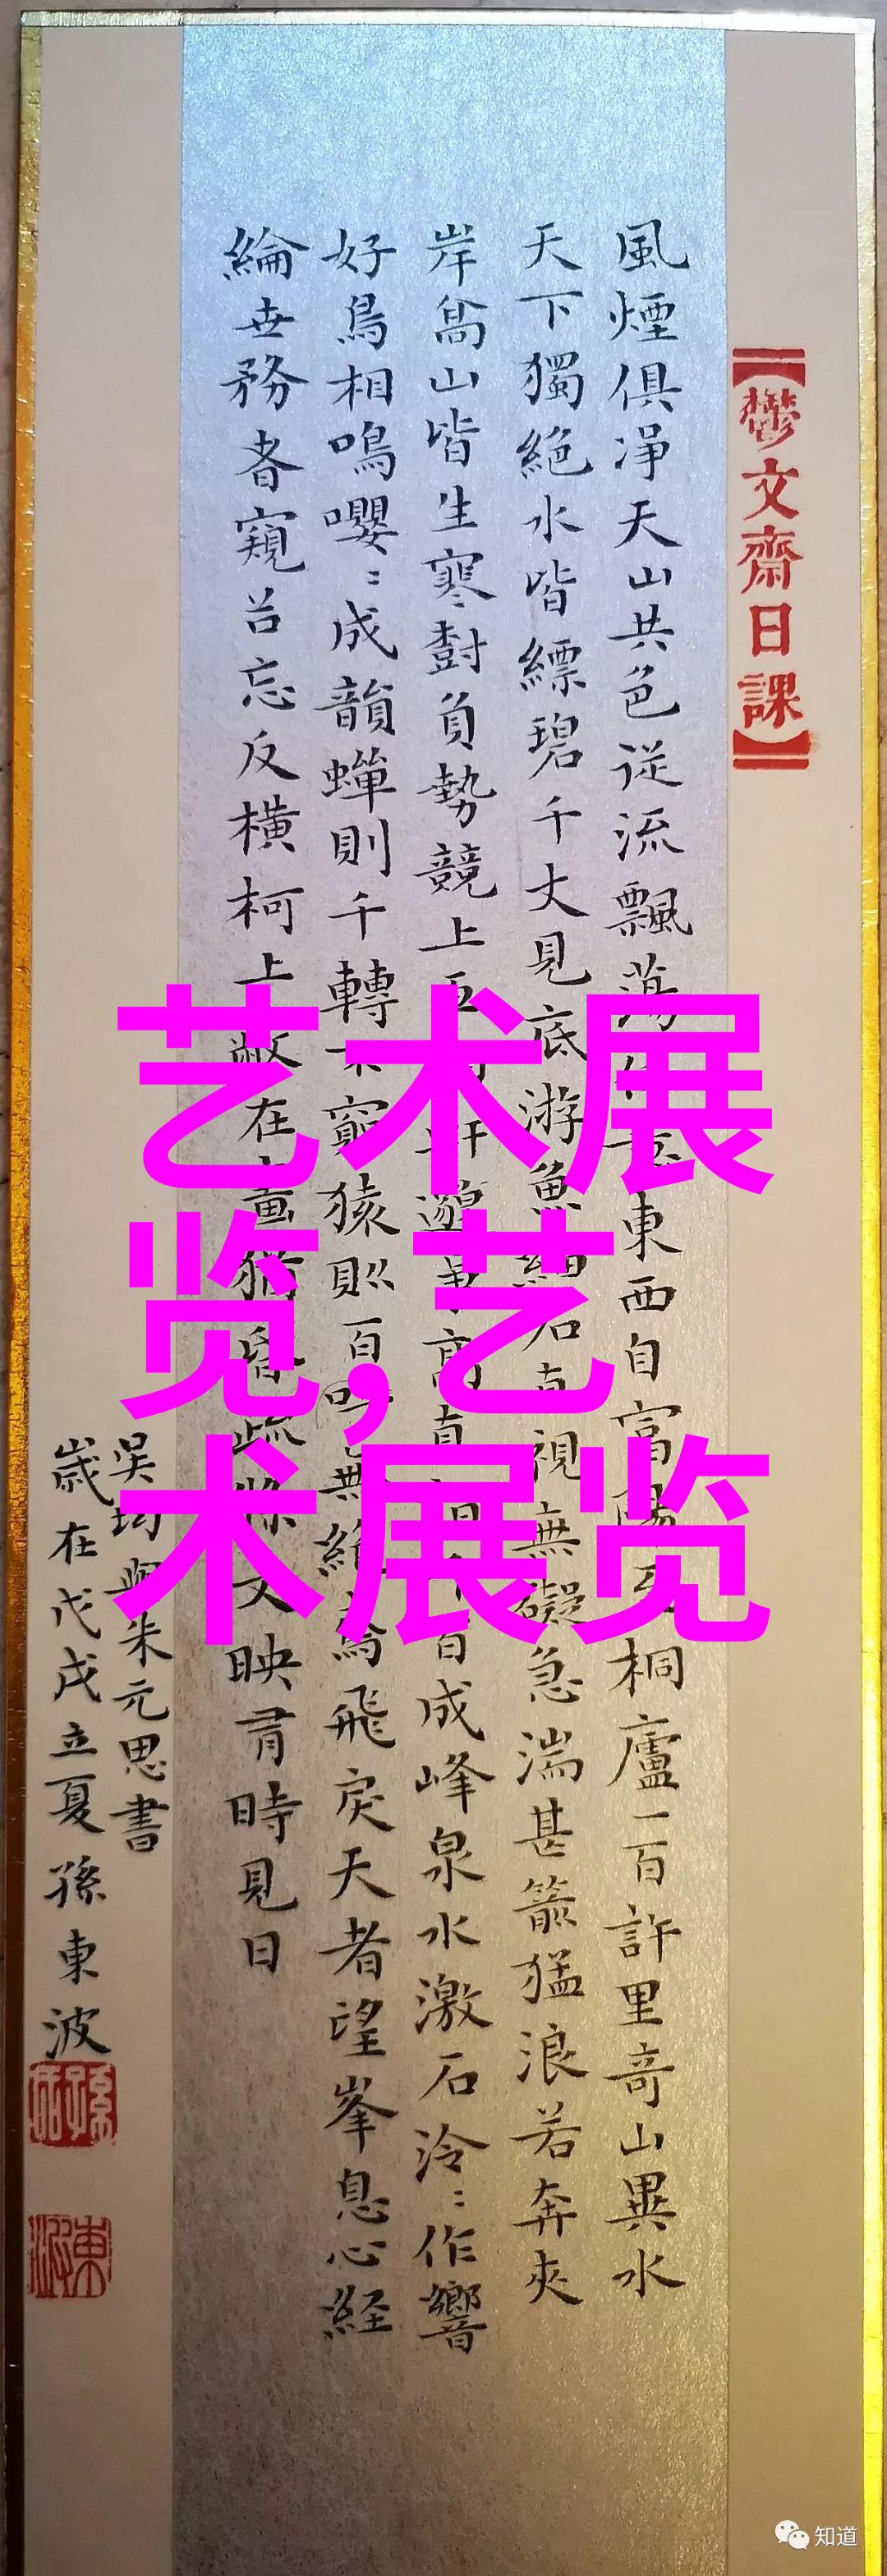 鬱文齋日課
風煙俱凈天山共色從流飄蕩東西自富陽至桐廬一百許里奇山異水
天下獨絕水皆縹碧千丈見底游魚細石直視無礙急湍甚箭猛浪若奔夾
岸高山皆生寒樹負勢競上互軒邈爭高直指百成峰泉水激石泠〻作響
好鳥相鳴嚶〻成韻蟬則千轉不窮猿則百叫無絕鳶飛戾天者望峯息心経
綸世務者窺谷忘反橫柯上蔽在晝猶昏疏條交映有時見日
吳均與朱元思書
歲在戊戌立夏孫東波
艺术展
览,艺
术展览
知道